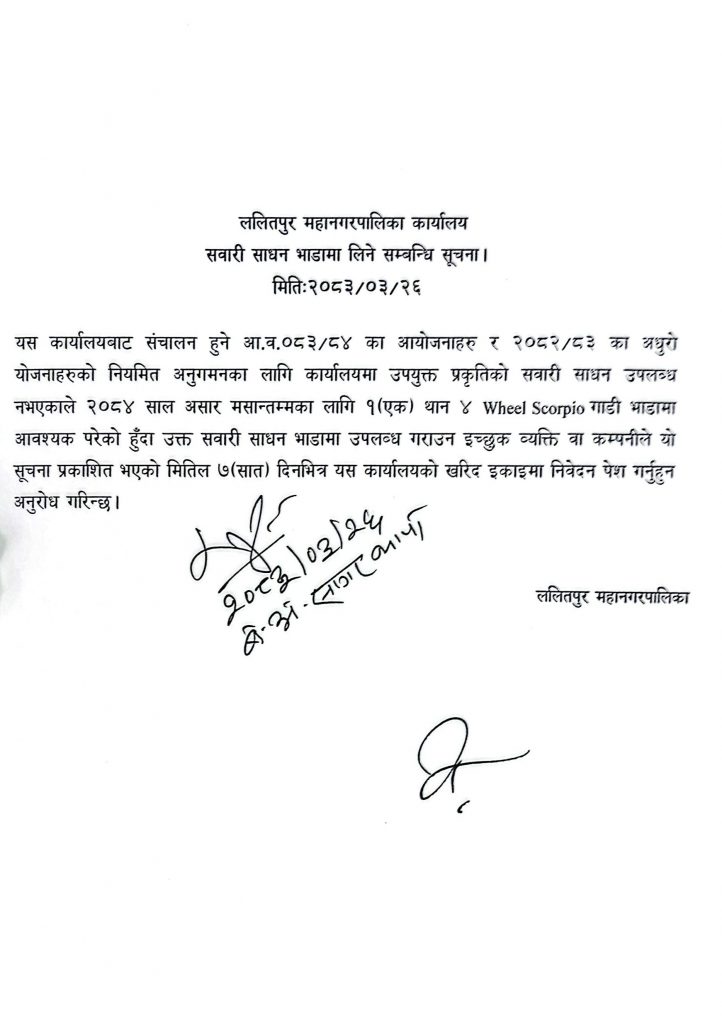 ललितपुर महानगरपालिका कार्यालय
सवारी साधन भाडामा लिने सम्बन्धि सूचना।
मितिः२०८३/०३/२६
यस कार्यालयबाट संचालन हुने आ.व.०८३/८४ का आयोजनाहरु र २०८२/८३ का अधुरो
योजनाहरुको नियमित अनुगमनका लागि कार्यालयमा उपयुक्त प्रकृतिको सवारी साधन उपलब्ध
नभएकाले २०८४ साल असार मसान्तम्मका लागि १(एक) थान ४ Wheel Scorpio गाडी भाडामा
आवश्यक परेको हुँदा उक्त सवारी साधन भाडामा उपलब्ध गराउन इच्छुक व्यक्ति वा कम्पनीले यो
सूचना प्रकाशित भएको मितिल ७(सात) दिनभित्र यस कार्यालयको खरिद इकाइमा निवेदन पेश गर्नुहुन
अनुरोध गरिन्छ।
२०८३/०३/२५
ललितपुर महानगरपालिका